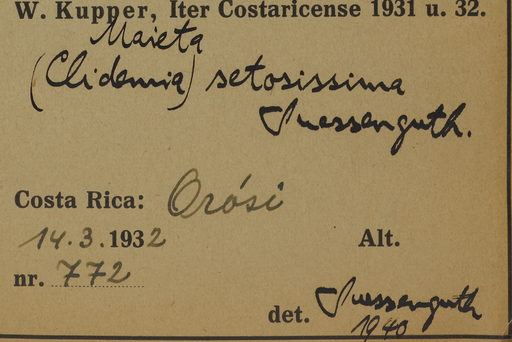 W. Kupper, Iter Costaricense 1931 u. 32.
Maieta
(Clidemia) setosissima
Suessenguth.
Costa Rica: Orósi
14.3.1932 Alt.
nr. 772
det. Suessenguth
1940